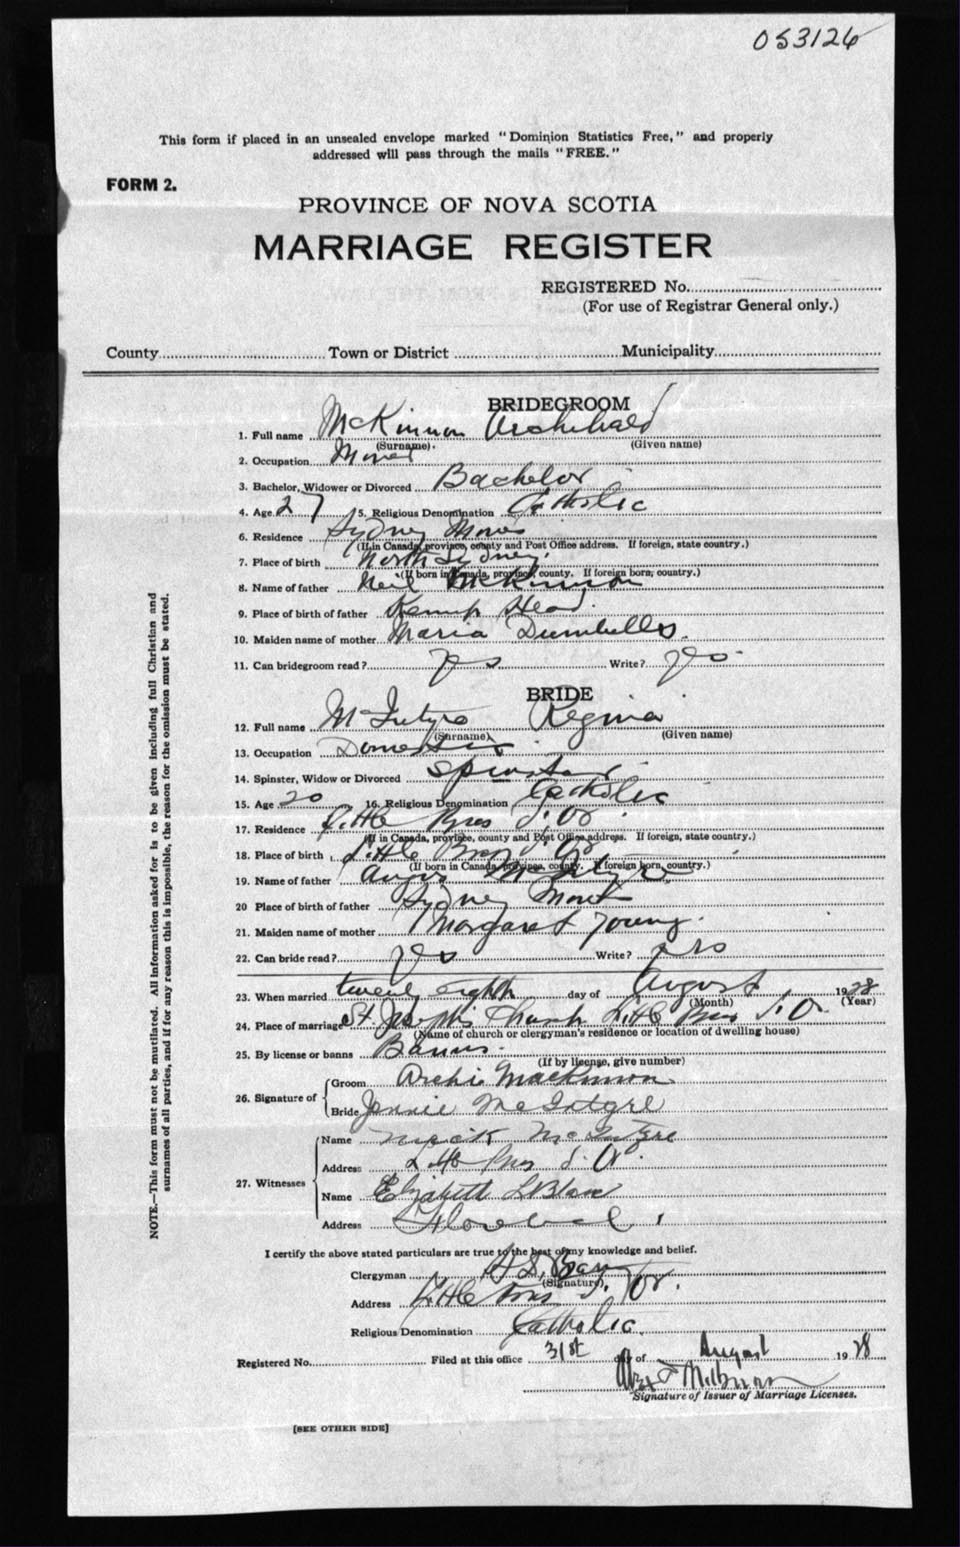 053126
This form if placed in an unsealed envelope marked "Dominion Statistics Free," and properly
addressed will pass through the mails "FREE."
FORM 2.
PROVINCE OF NOVA SCOTIA
MARRIAGE REGISTER
REGISTERED No.
(For use of Registrar General only.)
County Town or District Municipality
BRIDEGROOM
1. Full name McKinnon Archibald
(Surname). (Given name)
2. Occupation Miner
3. Bachelor, Widower or Divorced Bachelor
4. Age 27 5. Religious Denomination Catholic
6. Residence Sydney Mines
(If in Canada, province, county and Post Office address. If foreign, state country.)
7. Place of birth North Sydney
(If born in Canada, province, county. If foreign born, country.)
8. Name of father Neil McKinnon
9. Place of birth of father Kemp Head.
10. Maiden name of mother Maria
11. Can bridegroom read? yes Write? yes
BRIDE
12. Full name McIntyre Regina
(Surname) (Given name)
13. Occupation Domestic
14. Spinster, Widow or Divorced Spinster
15. Age 20 16. Religious Denomination Catholic
17. Residence Little Bras d'Or
(If in Canada, province, county and Post Office address. If foreign, state country.)
18. Place of birth Little Bras d'Or
(If born in Canada, province, county. If foreign born, country.)
19. Name of father Angus McIntyre
20 Place of birth of father Sydney Mines
21. Maiden name of mother Margaret Young.
22. Can bride read? yes Write? yes
23. When married twenty eighth day of August 1928
(Month) (Year)
24. Place of marriage St. Joseph's Church Little Bras d'Or
(Name of church or clergyman's residence or location of dwelling house)
25. By license or banns Banns.
(If by license, give number)
26. Signature of
Groom Archie MacKinnon
Bride Jennie McIntyre
27. Witnesses
Name McIntyre
Address Little Bras d'Or
Name Elizabeth LeBlanc
Address Florence
I certify the above stated particulars are true to the best of my knowledge and belief.
Clergyman
(Signature)
Address Little Bras d'Or.
Religious Denomination Catholic.
Registered No. Filed at this office 31st day of August 1928
Signature of Issuer of Marriage Licenses.
[SEE OTHER SIDE]
NOTE.—This form must not be mutilated. All information asked for is to be given including full Christian and
surnames of all parties, and if for any reason this is impossible, the reason for the omission must be stated.